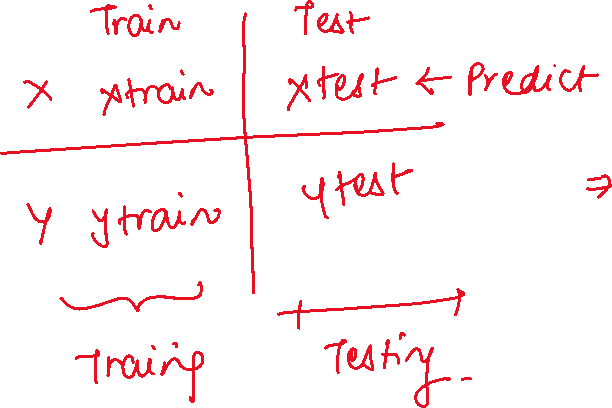 Train Test
X xtrain xtest ← Predict
Y ytrain ytest ⇒
Training Testing